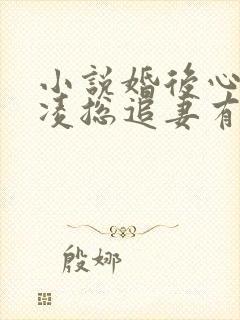 小説婚後心
凌总追妻有
殷娜